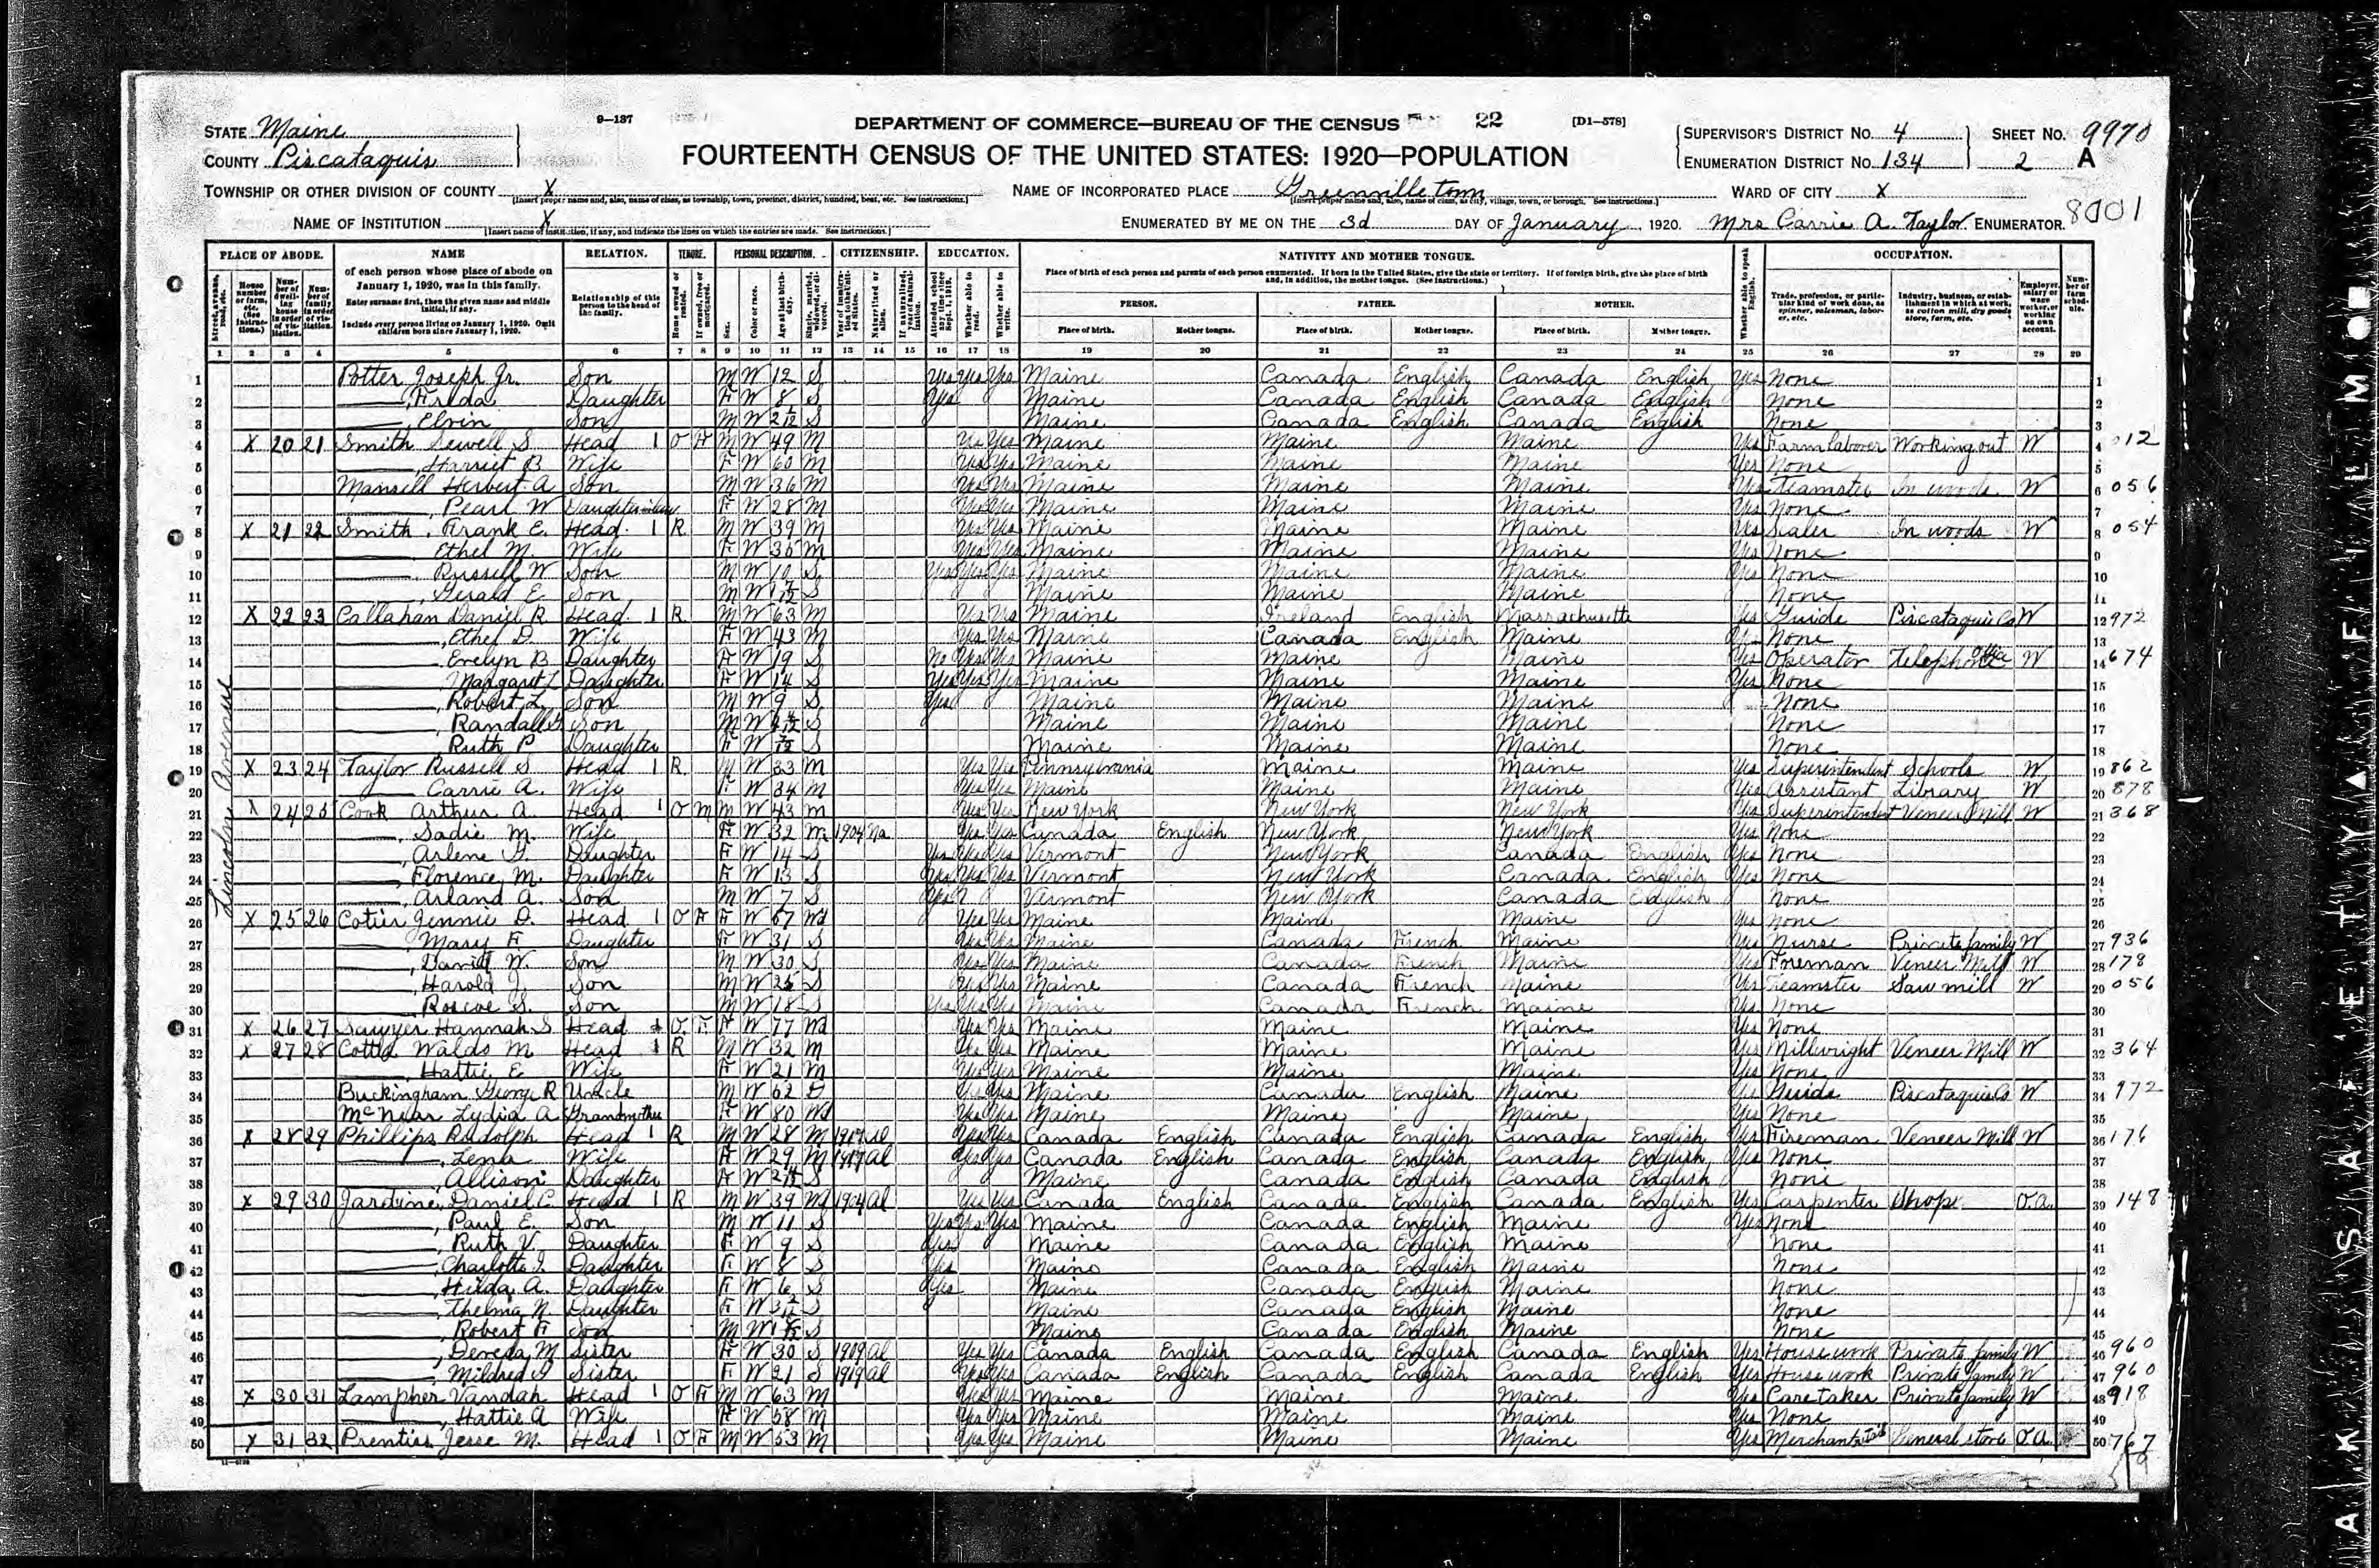 STATE Maine
COUNTY Piscataquis
9—137
DEPARTMENT OF COMMERCE—BUREAU OF THE CENSUS 22 [D1—578]
FOURTEENTH CENSUS OF THE UNITED STATES: 1920—POPULATION
SUPERVISOR'S DISTRICT NO. 4 SHEET NO. 9970
ENUMERATION DISTRICT NO. 134 2 A
TOWNSHIP OR OTHER DIVISION OF COUNTY X NAME OF INCORPORATED PLACE Greenville town WARD OF CITY X
NAME OF INSTITUTION X ENUMERATED BY ME ON THE 3d DAY OF January, 1920. Mrs Carrie A. Taylor ENUMERATOR. 8001
PLACE OF ABODE. NAME RELATION. TENURE. PERSONAL DESCRIPTION. CITIZENSHIP. EDUCATION. NATIVITY AND MOTHER TONGUE. OCCUPATION.
of each person whose place of abode on January 1, 1920, was in this family.
Enter surname first, then the given name and middle initial, if any.
Include every person living on January 1, 1920. Omit children born since January 1, 1920.
Relationship of this person to the head of the family.
Place of birth of each person and parents of each person enumerated. If born in the United States, give the state or territory. If of foreign birth, give the place of birth and, in addition, the mother tongue. (See instructions.)
PERSON. FATHER. MOTHER.
Place of birth. Mother tongue. Place of birth. Mother tongue. Place of birth. Mother tongue.
1 2 3 4 5 6 7 8 9 10 11 12 13 14 15 16 17 18 19 20 21 22 23 24 25 26 27 28 29
Lincoln Avenue
1 Potter Joseph Jr. Son M W 12 S Yes Yes Yes Maine Canada English Canada English Yes None 1
2 Freda Daughter F W 8 S Yes Maine Canada English Canada English None 2
3 Elvin Son M W 2 S Maine Canada English Canada English None 3
4 X 20 21 Smith Sewell S Head 1 O F M W 49 M Yes Yes Maine Maine Maine Yes Farm laborer Working out W 4 012
5 Harriet B Wife F W 60 M Yes Yes Maine Maine Maine Yes None 5
6 Mansell Herbert A Son M W 36 M Yes Yes Maine Maine Maine Yes Teamster In woods W 6 056
7 Pearl W Daughter-in-law F W 28 M Yes Yes Maine Maine Maine Yes None 7
8 X 21 22 Smith, Frank E. Head 1 R M W 39 M Yes Yes Maine Maine Maine Yes Scaler In woods W 8 054
9 Ethel M. Wife F W M Yes Yes Maine Maine Maine Yes None 9
10 Russell W Son M W 10 S Yes Yes Yes Maine Maine Maine Yes None 10
11 Gerald E Son M W 1 S Maine Maine Maine None 11
12 X 22 23 Callahan Daniel R. Head 1 R M W 63 M Yes Yes Maine Ireland English Massachusetts Yes Guide Piscataquis Co W 12 972
13 Ethel D. Wife F W 43 M Yes Yes Maine Canada English Maine Yes None 13
14 Evelyn B Daughter F W 19 S No Yes Yes Maine Maine Maine Yes Operator Telephone office W 14 674
15 Margaret L Daughter F W 14 S Yes Yes Yes Maine Maine Maine Yes None 15
16 Robert L. Son M W 9 S Yes Maine Maine Maine None 16
17 Randall Son M W S Maine Maine Maine None 17
18 Ruth P. Daughter F W S Maine Maine Maine None 18
19 X 23 24 Taylor Russell S Head 1 R M W 33 M Yes Yes Pennsylvania Maine Maine Yes Superintendent Schools W 19 862
20 Carrie A. Wife F W 34 M Yes Yes Maine Maine Maine Yes Assistant Library W 20 878
21 X 24 25 Cook Arthur A. Head 1 O M M W 43 M Yes Yes New York New York New York Yes Superintendent Veneer Mill W 21 368
22 Sadie M. Wife F W 32 M 1904 Na Yes Yes Canada English New York New York Yes None 22
23 Arlene G. Daughter F W 14 S Yes Yes Yes Vermont New York Canada English Yes None 23
24 Florence M. Daughter F W 13 S Yes Yes Yes Vermont New York Canada English Yes None 24
25 Arland A. Son M W 7 S Yes Vermont New York Canada English None 25
26 X 25 26 Cotier Jennie D. Head 1 O F F W 67 Wd Yes Yes Maine Maine Maine Yes None 26
27 Mary F. Daughter F W 31 S Yes Yes Maine Canada French Maine Yes Nurse Private family W 27 936
28 David W. Son M W 30 S Yes Yes Maine Canada French Maine Yes Foreman Veneer Mill W 28 178
29 Harold J. Son M W 25 S Yes Yes Maine Canada French Maine Yes Teamster Saw mill W 29 056
30 Roscoe S. Son M W 18 S Yes Yes Yes Maine Canada French Maine Yes None 30
31 X 26 27 Sawyer Hannah S Head 1 O F F W 77 Wd Yes Yes Maine Maine Maine Yes None 31
32 X 27 28 Waldo M Head 1 R M W 32 M Yes Yes Maine Maine Maine Yes Millwright Veneer Mill W 32 364
33 Hattie E Wife F W 21 M Yes Yes Maine Maine Maine Yes None 33
34 Buckingham George R Uncle M W 62 D Yes Yes Maine Canada English Maine Yes Guide Piscataquis Co W 34 972
35 McNear Lydia A Grandmother F W 80 Wd Yes Yes Maine Maine Maine Yes None 35
36 X 28 29 Phillips Rudolph Head 1 R M W 28 M Al Yes Yes Canada English Canada English Canada English Yes Fireman Veneer Mill W 36 176
37 Lena Wife F W 29 M Al Yes Yes Canada English Canada English Canada English Yes None 37
38 Allison Daughter F W 2 S Maine Canada English Canada English None 38
39 X 29 30 Jardine, Daniel C. Head 1 R M W 39 Wd 1904 Al Yes Yes Canada English Canada English Canada English Yes Carpenter Shop O.A. 39 148
40 Paul E. Son M W 11 S Yes Yes Yes Maine Canada English Maine Yes None 40
41 Ruth V. Daughter F W 9 S Yes Maine Canada English Maine None 41
42 Charlotte I. Daughter F W 8 S Yes Maine Canada English Maine None 42
43 Hilda A. Daughter F W 6 S Yes Maine Canada English Maine None 43
44 Thelma N. Daughter F W 3 S Maine Canada English Maine None 44
45 Robert F Son M W 1 S Maine Canada English Maine None 45
46 Dereda M Sister F W 30 S 1919 Al Yes Yes Canada English Canada English Canada English Yes Housework Private family W 46 960
47 Mildred Sister F W 21 S 1919 Al Yes Yes Canada English Canada English Canada English Yes House work Private family W 47 960
48 X 30 31 Lampher Vandah Head 1 O F M W 63 M Yes Yes Maine Maine Maine Yes Caretaker Private family W 48 918
49 Hattie A Wife F W 58 M Yes Yes Maine Maine Maine Yes None 49
50 X 31 32 Prentiss Jesse M. Head 1 O F M W 53 M Yes Yes Maine Maine Maine Yes Merchant retail General store O A 50 767